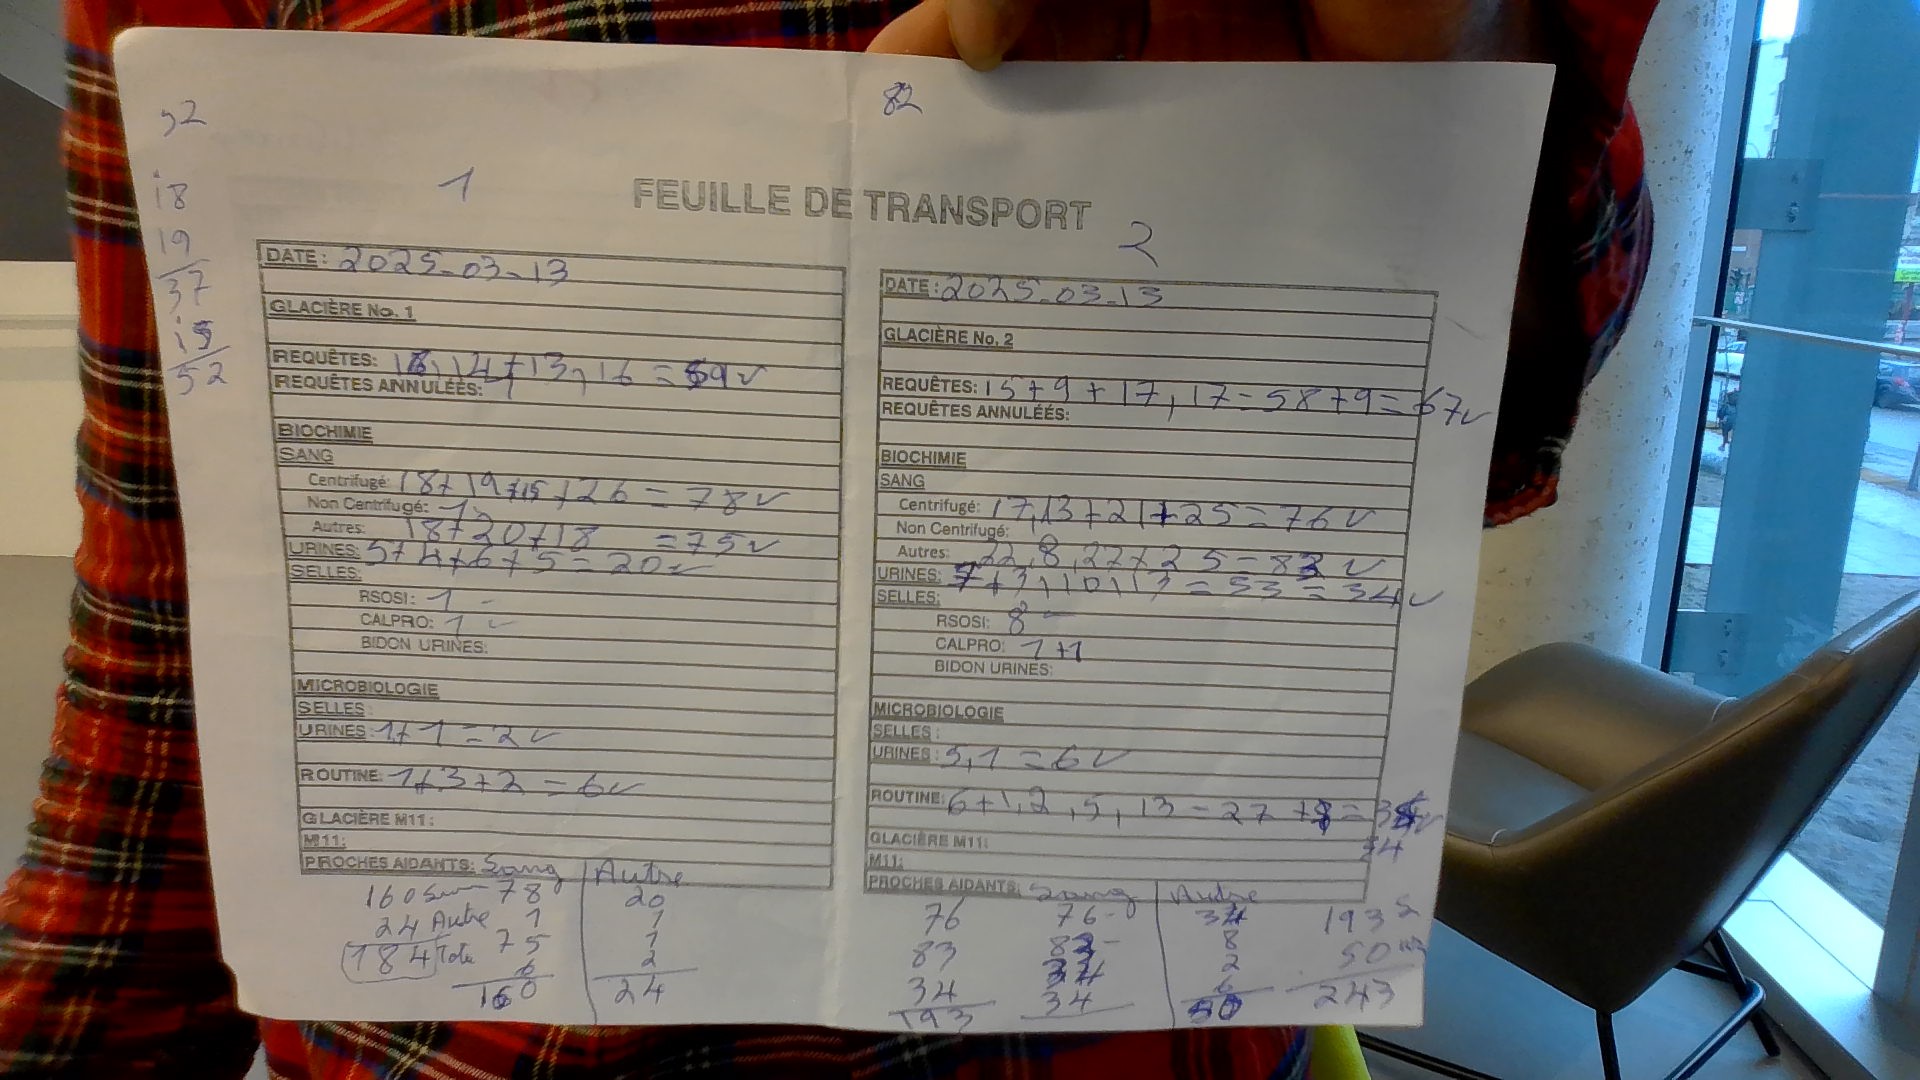 52
82
18
19
37
15
52
1
FEUILLE DE TRANSPORT
2
DATE: 2025-03-13
GLACIÈRE No. 1
REQUÊTES: 18, 14+13, 16 = 59 ✓
REQUÊTES ANNULÉÉS:
BIOCHIMIE
SANG
Centrifugé: 18+19+15+26 = 78 ✓
Non Centrifugé: 1
Autres: 18+20+18 = 75 ✓
URINES: 5+4+6+5 = 20 ✓
SELLES:
RSOSI: 1 -
CALPRO: 1 -
BIDON URINES:
MICROBIOLOGIE
SELLES:
URINES: 1+1 = 2 ✓
ROUTINE: 1+3+2 = 6 ✓
GLACIÈRE M11:
M11:
PROCHES AIDANTS: Sang Autre
160 78 20
24 Autre 1 1
184 75 1
6 2
160 24
DATE: 2025-03-13
GLACIÈRE No. 2
REQUÊTES: 15+9+17, 17 = 58+9 = 67 ✓
REQUÊTES ANNULÉÉS:
BIOCHIMIE
SANG
Centrifugé: 17,13+21+25 = 76 ✓
Non Centrifugé:
Autres: 22, 8, 27+25 = 83 ✓
URINES: 7+3,10,13 = 33 = 34 ✓
SELLES:
RSOSI: 8 -
CALPRO: 1+1
BIDON URINES:
MICROBIOLOGIE
SELLES :
URINES : 5,1 = 6 ✓
ROUTINE: 6+1,2,5,13 = 27 +
34
GLACIÈRE M11:
M11:
PROCHES AIDANTS: Sang Autre
76 76- 34 193 S
83 82- 8 50
34 34 2 243
193 34 6
50